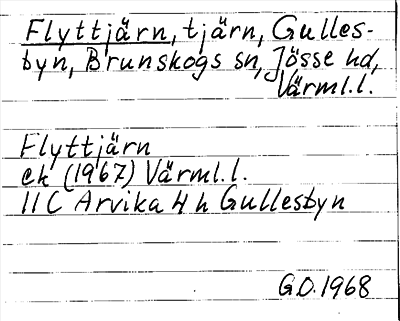 Flyttjärn, tjärn, Gulles-
byn, Brunskogs sn, Jösse hd,
Värml.l.
Flyttjärn
ek (1967) Värml.l.
11C Arvika 4 h Gullesbyn
G.O. 1968